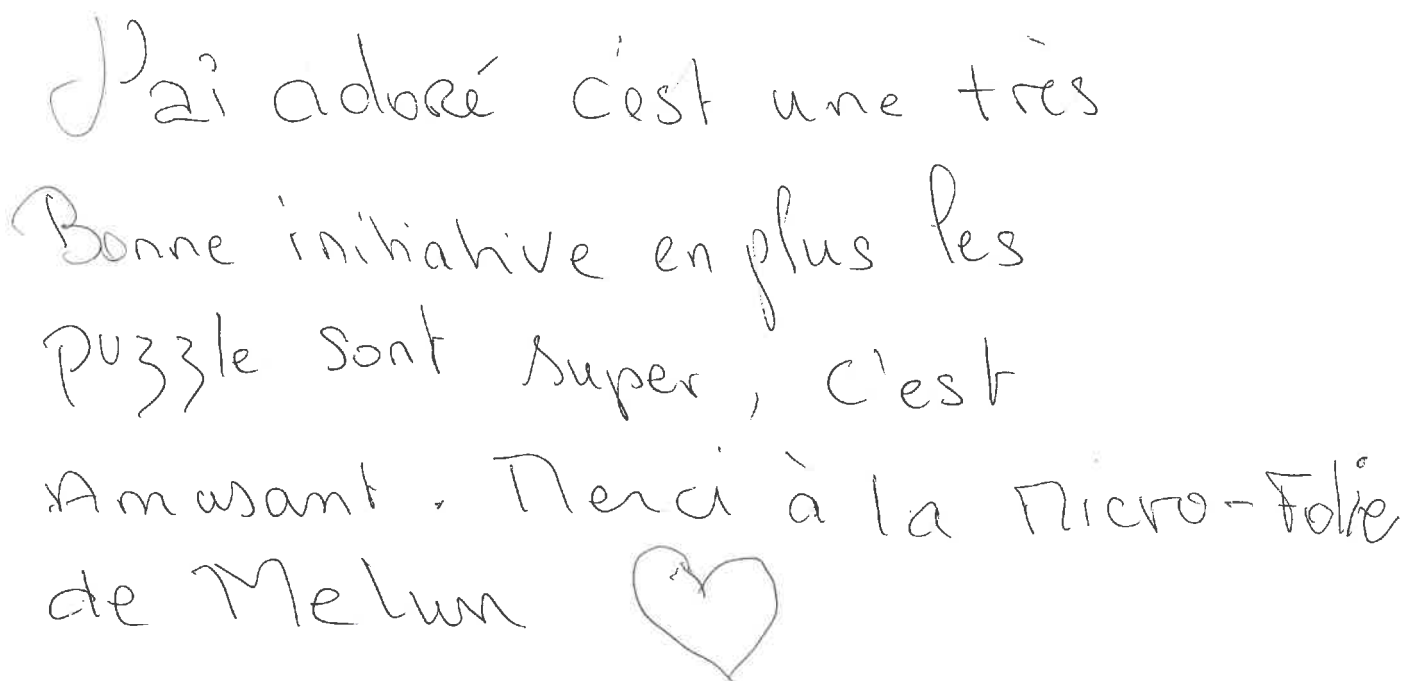 J'ai adoré c'est une très
Bonne initiative en plus les
puzzle sont super, c'est
Amusant. Merci à la Micro-Folie
de Melun